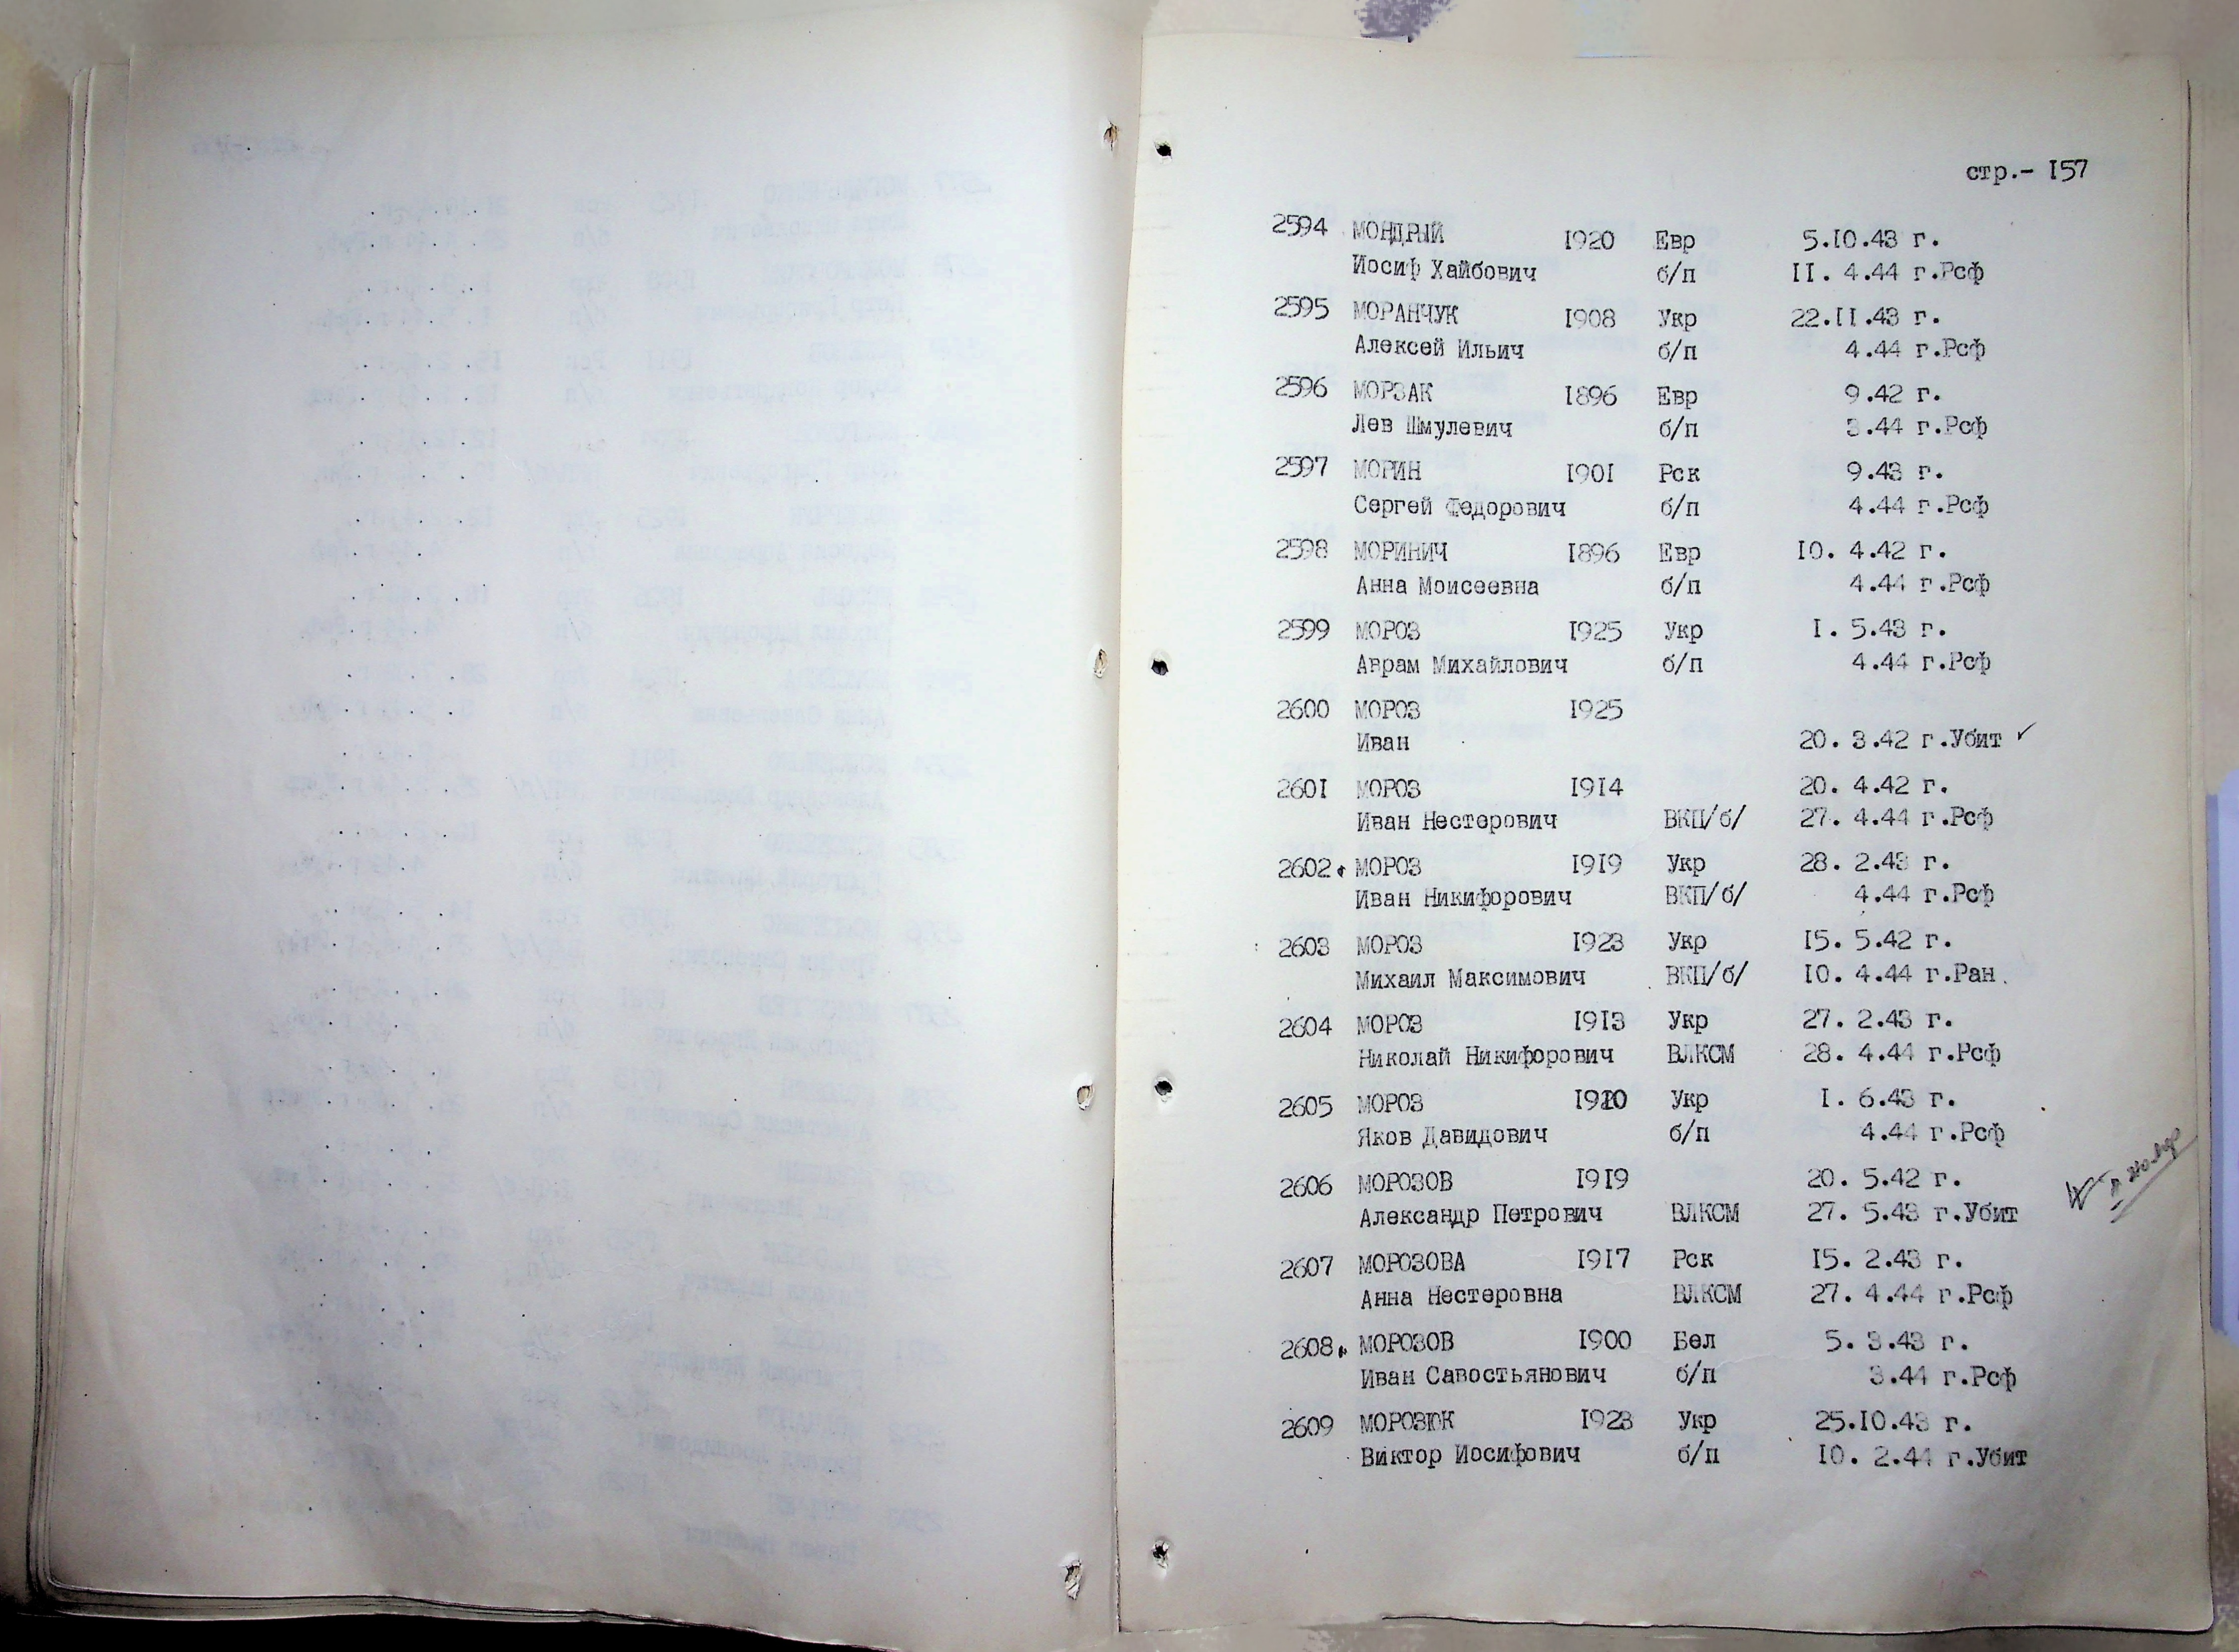 стр.- I57
2594 МОНДРЫЙ I920 Евр 5.I0.43 г.
Иосиф Хайбович б/п II. 4.44 г.Рсф
2595 МОРАНЧУК I908 Укр 22.II.43 г.
Алексей Ильич б/п 4.44 г.Рсф
2596 МОРЗАК I896 Евр 9.42 г.
Лев Шмулевич б/п 3.44 г.Рсф
2597 МОРИН I90I Рск 9.43 г.
Сергей Федорович б/п 4.44 г.Рсф
2598 МОРИНИЧ I896 Евр I0. 4.42 г.
Анна Моисеевна б/п 4.44 г.Рсф
2599 МОРОЗ I925 Укр I. 5.43 г.
Аврам Михайлович б/п 4.44 г.Рсф
2600 МОРОЗ I925
Иван 20. 3.42 г.Убит ✓
260I МОРОЗ I9I4 20. 4.42 г.
Иван Нестерович ВКП/б/ 27. 4.44 г.Рсф
2602. МОРОЗ I9I9 Укр 28. 2.43 г.
Иван Никифорович ВКП/б/ 4.44 г.Рсф
2603 МОРОЗ I923 Укр I5. 5.42 г.
Михаил Максимович ВКП/б/ I0. 4.44 г.Ран.
2604 МОРОЗ I9I3 Укр 27. 2.43 г.
Николай Никифорович ВЛКСМ 28. 4.44 г.Рсф
2605 МОРОЗ Укр I. 6.43 г.
Яков Давидович б/п 4.44 г.Рсф
2606 МОРОЗОВ I9I9 20. 5.42 г.
Александр Петрович ВЛКСМ 27. 5.43 г.Убит
2607 МОРОЗОВА I9I7 Рск I5. 2.43 г.
Анна Нестеровна ВЛКСМ 27. 4.44 г.Рсф
2608. МОРОЗОВ I900 Бел 5. 3.43 г.
Иван Савостьянович б/п 3.44 г.Рсф
2609 МОРОЗЮК I923 Укр 25.I0.43 г.
Виктор Иосифович б/п I0. 2.44 г.Убит